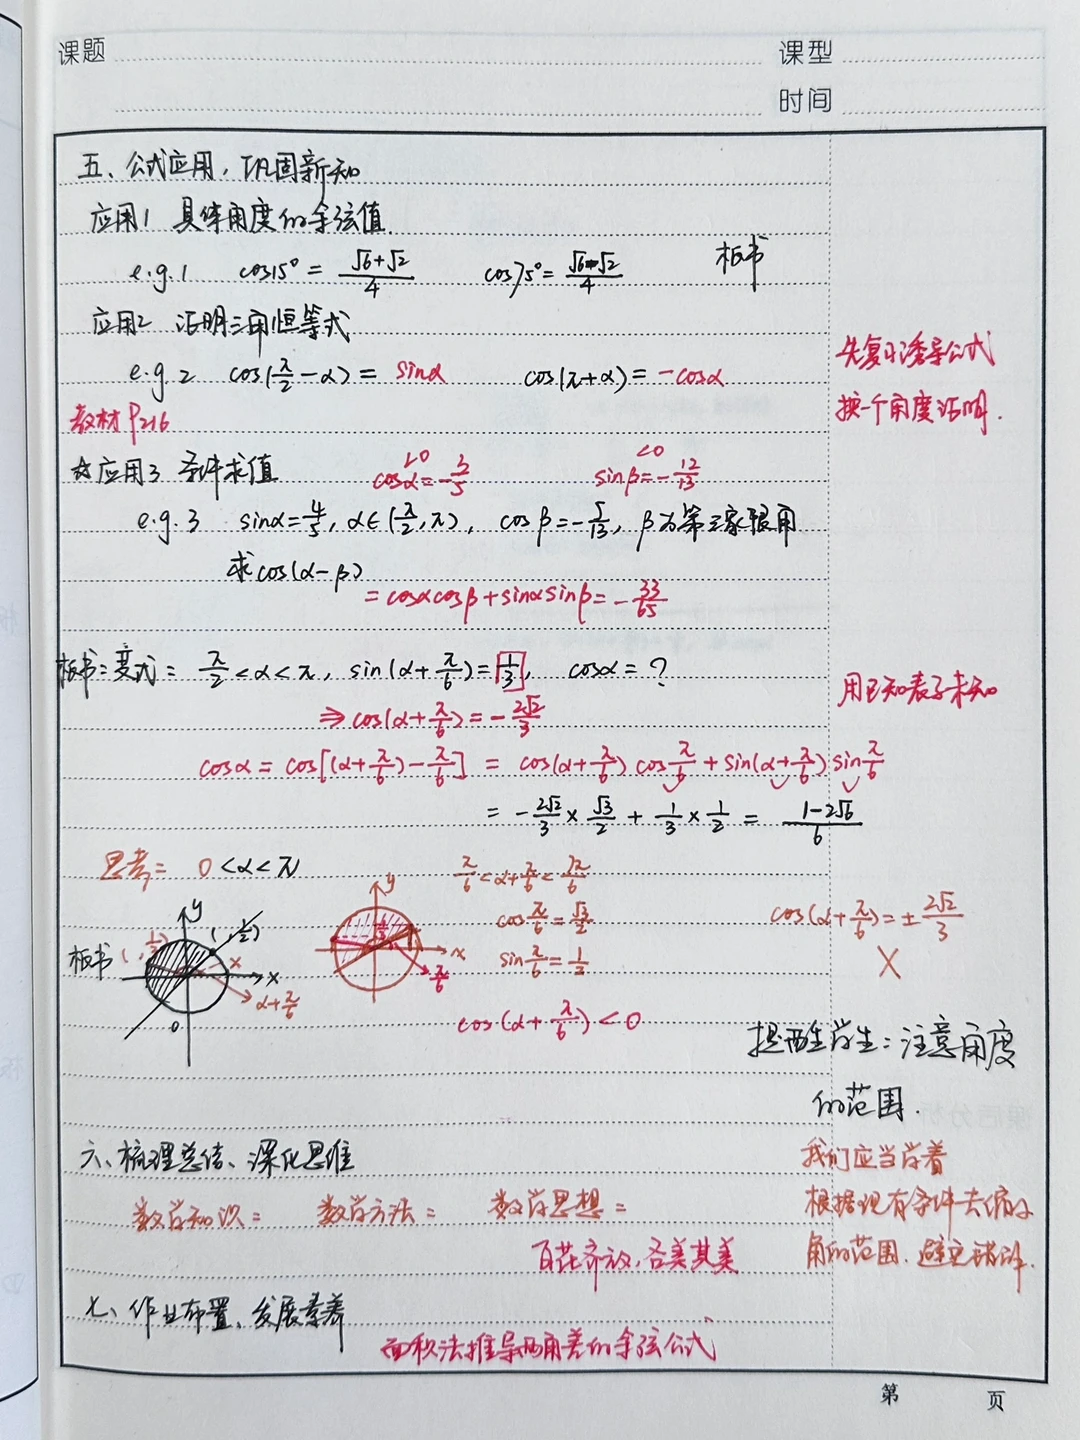 课题
课型
时间
五、公式应用，巩固新知
应用1 具体角度的余弦值
e.g.1 cos15°= (√6+√2)/4 cos75°= (√6-√2)/4 板书
应用2 证明三角恒等式
e.g.2 cos(π/2-α)= sinα cos(π+α)= -cosα
先复习诱导公式
换一个角度证明.
教材P216
☆应用3 条件求值
<0 cosα=-3/5 <0 sinβ=-12/13
e.g.3 sinα=4/5, α∈(π/2,π), cosβ=-5/13, β为第三象限角
求cos(α-β)
=cosαcosβ+sinαsinβ=-33/65
板书:变式: π/2<α<π, sin(α+π/6)=1/3, cosα=?
用已知表示未知
⇒cos(α+π/6)=-2√2/3
cosα=cos[(α+π/6)-π/6] = cos(α+π/6)cosπ/6+sin(α+π/6)sinπ/6
= -2√2/3×√3/2+1/3×1/2= (1-2√6)/6
思考: 0<α<π
π/6<α+π/6<7π/6
cosπ/6=√3/2
sinπ/6=1/2
cos(α+π/6)<0
cos(α+π/6)=±2√2/3
×
板书
y
( , 1/2)
( , 1/2)
x
x
α+π/6
0
y
1/3
x
π/6
提醒学生:注意角度
的范围.
六、梳理总结、深化思维
数学知识: 数学方法: 数学思想:
百花齐放,各美其美
我们应当学着
根据现有条件去缩小
角的范围.避免错解.
七、作业布置、发展素养
面积法推导两角差的余弦公式
第 页